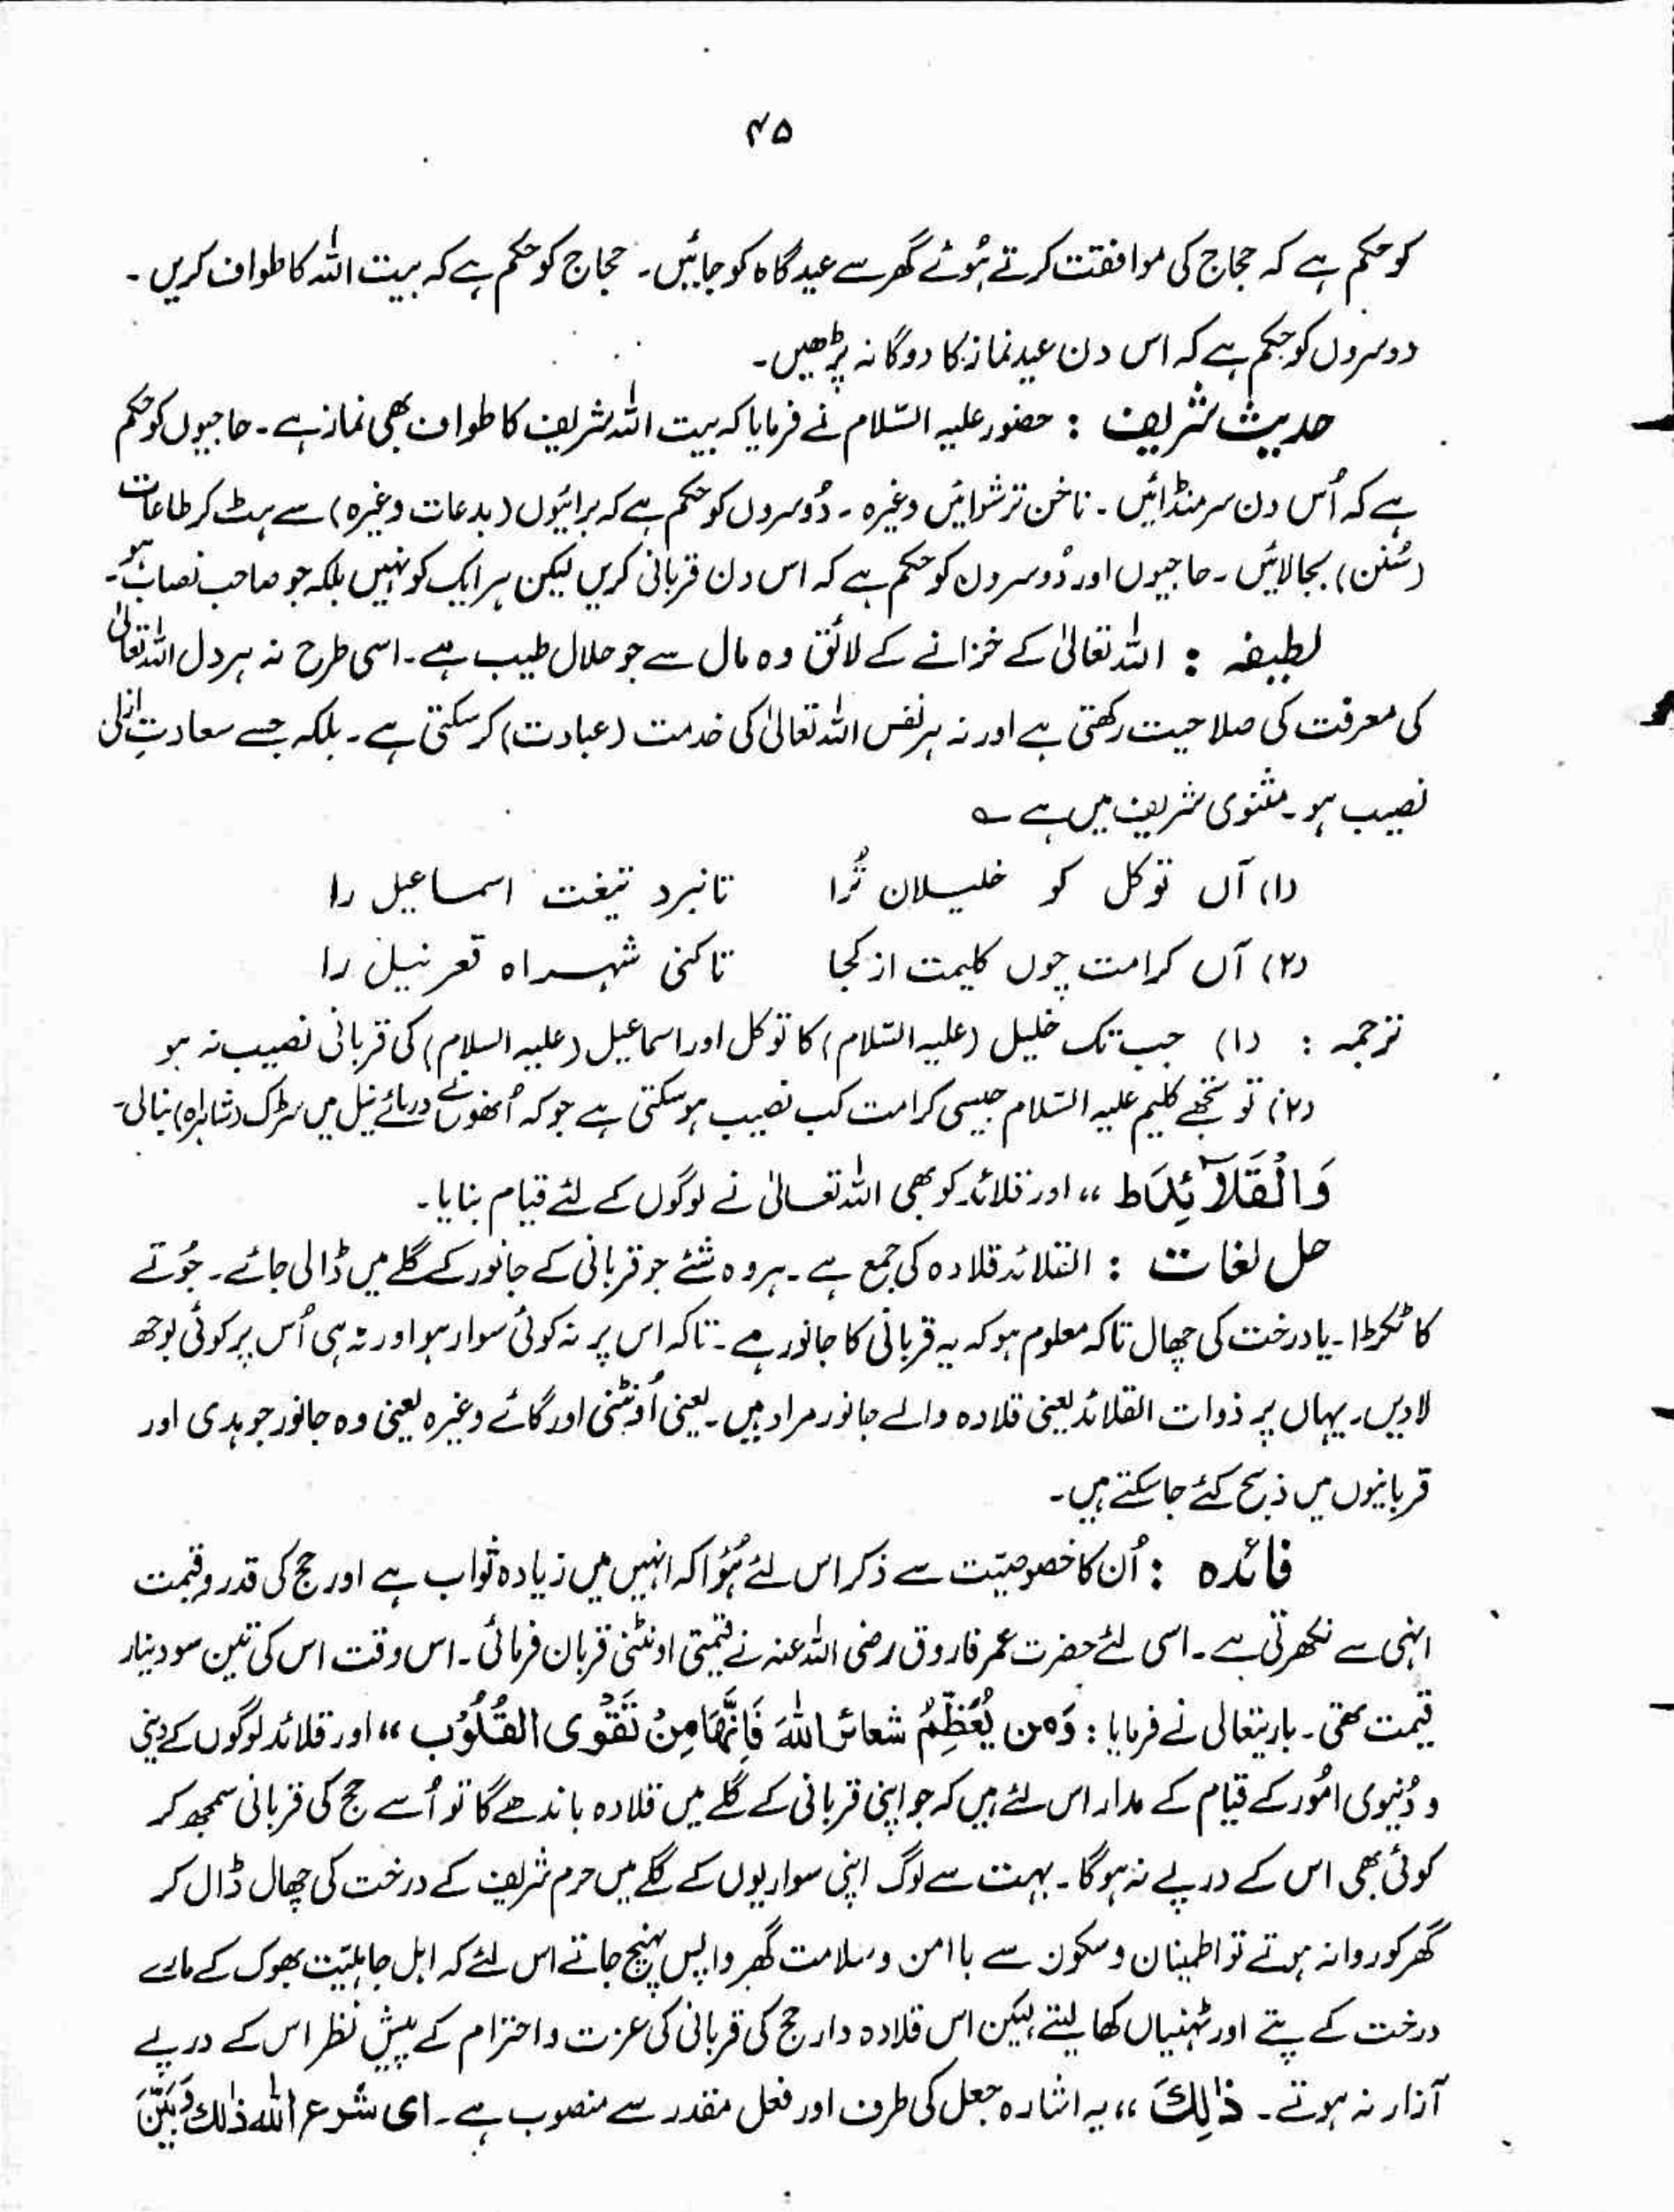 ۴۵
کو حکم ہے کہ حجاج کی موافقت کرتے ہُوئے گھر سے عید گاہ کو جائیں۔ حجاج کو حکم ہے کہ بیت اللہ کا طواف کریں۔
دوسروں کو حکم ہے کہ اس دن عید نماز کا دوگانہ پڑھیں۔
حدیث شریف : حضور علیہ السّلام نے فرمایا کہ بیت اللہ شریف کا طواف بھی نماز ہے۔ حاجیوں کو حکم
ہے کہ اُس دن سر منڈائیں۔ ناخن ترشوائیں وغیرہ۔ دُوسروں کو حکم ہے کہ برائیوں (بدعات وغیرہ) سے ہٹ کر طاعات
(سُنن) بجا لائیں۔ حاجیوں اور دُوسروں کو حکم ہے کہ اس دن قربانی کریں لیکن ہر ایک کو نہیں بلکہ جو صاحب نصاب ہو۔
لطیفہ : اللہ تعالیٰ کے خزانے کے لائق وہ مال سے جو حلال طیب ہے۔ اسی طرح نہ ہر دل اللہ تعالیٰ
کی معرفت کی صلاحیت رکھتی ہے اور نہ ہر نفس اللہ تعالیٰ کی خدمت (عبادت) کر سکتی ہے۔ بلکہ جسے سعادتِ ازلی
نصیب ہو۔ مثنوی شریف میں ہے ؎
(۱) آں توکل کو خلیلان تُرا تا نبرد تیغت اسماعیل را
(۲) آں کرامت چوں کلیمت از کجا تا کنی شہراہ قعر نیل را
ترجمہ : (۱) جب تک خلیل (علیہ السّلام) کا توکل اور اسماعیل (علیہ السلام) کی قربانی نصیب نہ ہو
(۲) تو تجھے کلیم علیہ السّلام جیسی کرامت کب نصیب ہو سکتی ہے جو کہ اُنھوں نے دریائے نیل میں سڑک (شاہراہ) بنالی۔
وَالْقَلَآئِدَط ،، اور قلائد کو بھی اللہ تعالیٰ نے لوگوں کے لئے قیام بنایا۔
حل لغات : القلائد قلادہ کی جمع ہے۔ ہر وہ شئے جو قربانی کے جانور کے گلے میں ڈالی جائے۔ جُوتے
کا ٹکڑا۔ یا درخت کی چھال تاکہ معلوم ہو کہ یہ قربانی کا جانور ہے۔ تاکہ اس پر نہ کوئی سوار ہو اور نہ ہی اُس پر کوئی بوجھ
لادیں۔ یہاں پر ذوات القلائد یعنی قلادہ والے جانور مراد ہیں۔ یعنی اُونٹنی اور گائے وغیرہ یعنی وہ جانور جو ہدی اور
قربانیوں میں ذبح کئے جا سکتے ہیں۔
فائدہ : اُن کا خصوصیّت سے ذکر اس لئے ہُوا کہ انہیں میں زیادہ ثواب ہے اور حج کی قدر و قیمت
انہی سے نکھرتی ہے۔ اسی لئے حضرت عمر فاروق رضی اللہ عنہ نے قیمتی اونٹنی قربان فرمائی۔ اس وقت اس کی تین سو دینار
قیمت تھی۔ باریتعالی نے فرمایا : وَمن یُعَظِّمْ شعائر اللہَ فَاِنَّھَا مِنْ تَقْوَی القُلُوْب ،، اور قلائد لوگوں کے دینی
و دُنیوی امُور کے قیام کے مدار اس لئے ہیں کہ جو اپنی قربانی کے گلے میں قلادہ باندھے گا تو اُسے حج کی قربانی سمجھ کر
کوئی بھی اس کے درپے نہ ہوگا۔ بہت سے لوگ اپنی سواریوں کے گلے میں حرم شریف کے درخت کی چھال ڈال کر
گھر کو روانہ ہوتے تو اطمینان و سکون سے با امن و سلامت گھر واپس پہنچ جاتے اس لئے کہ اہل جاہلیّت بھوک کے مارے
درخت کے پتے اور ٹہنیاں کھا لیتے لیکن اس قلادہ دار حج کی قربانی کی عزت و احترام کے پیشِ نظر اس کے درپے
آزار نہ ہوتے۔ ذٰلِکَ ،، یہ اشارہ جعل کی طرف اور فعل مقدر سے منصوب ہے۔ ای شرع اللہ ذٰلك وَبَیَّنَ